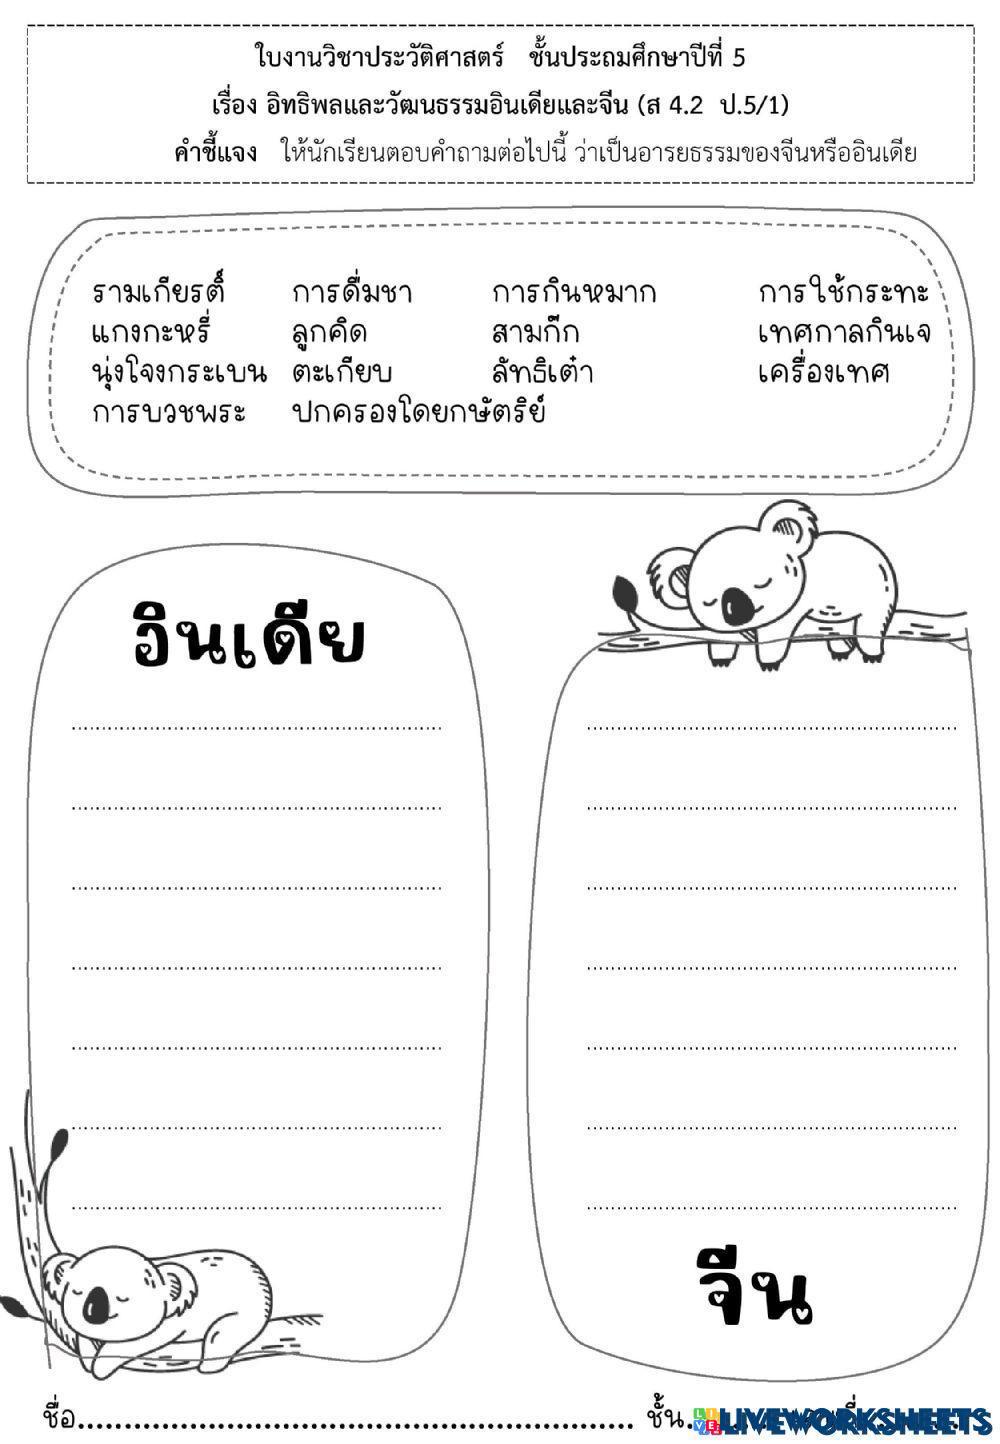 ใบงานวิชาประวัติศาสตร์ ชั้นประถมศึกษาปีที่ 5
เรื่อง อิทธิพลและวัฒนธรรมอินเดียและจีน (ส 4.2 ป.5/1)
คำชี้แจง ให้นักเรียนตอบคำถามต่อไปนี้ ว่าเป็นอารยธรรมของจีนหรืออินเดีย
รามเกียรติ์ การดื่มชา การกินหมาก การใช้กระทะ
แกงกะหรี่ ลูกคิด สามก๊ก เทศกาลกินเจ
นุ่งโจงกระเบน ตะเกียบ ลัทธิเต๋า เครื่องเทศ
การบวชพระ ปกครองโดยกษัตริย์
อินเดีย
จีน
ชื่อ ชั้น
LIVEWORKSHEETS